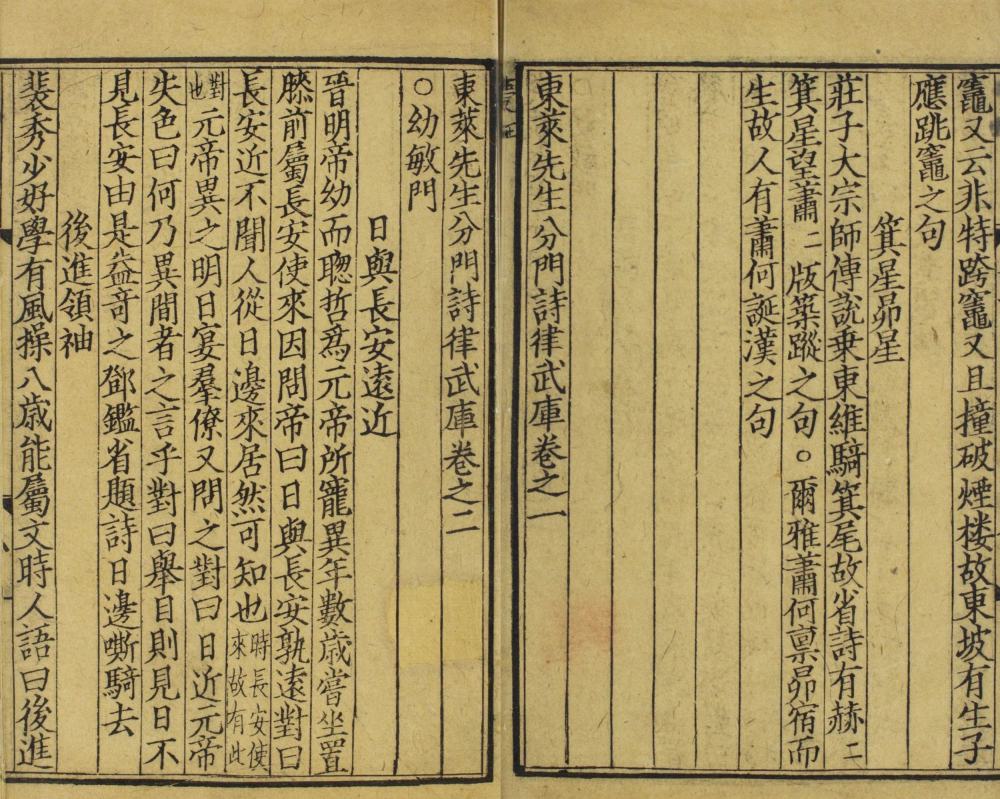 竈又云非特跨竈又且撞破煙楼故東坡有生子
應跳竈之句
箕星昴星
莊子大宗師傳說乗東維騎箕尾故省詩有赫二
箕星望蕭二版築蹤之句○爾雅蕭何禀昴宿而
生故人有蕭何誕漢之句
東萊先生分門詩律武庫卷之一
東萊先生分門詩律武庫卷之二
○幼敏門
日與長安遠近
晉明帝幼而聦哲爲元帝所寵異年數歳嘗坐置
膝前屬長安使來因問帝曰日與長安孰遠對曰
長安近不聞人從日邊來居然可知也時長安使來故有此
對也元帝異之明日宴羣僚又問之對曰日近元帝
失色曰何乃異間者之言乎對曰舉目則見日不
見長安由是益竒之鄧鑑省題詩日邊嘶騎去
後進領袖
裴秀少好學有風操八歳能屬文時人語曰後進